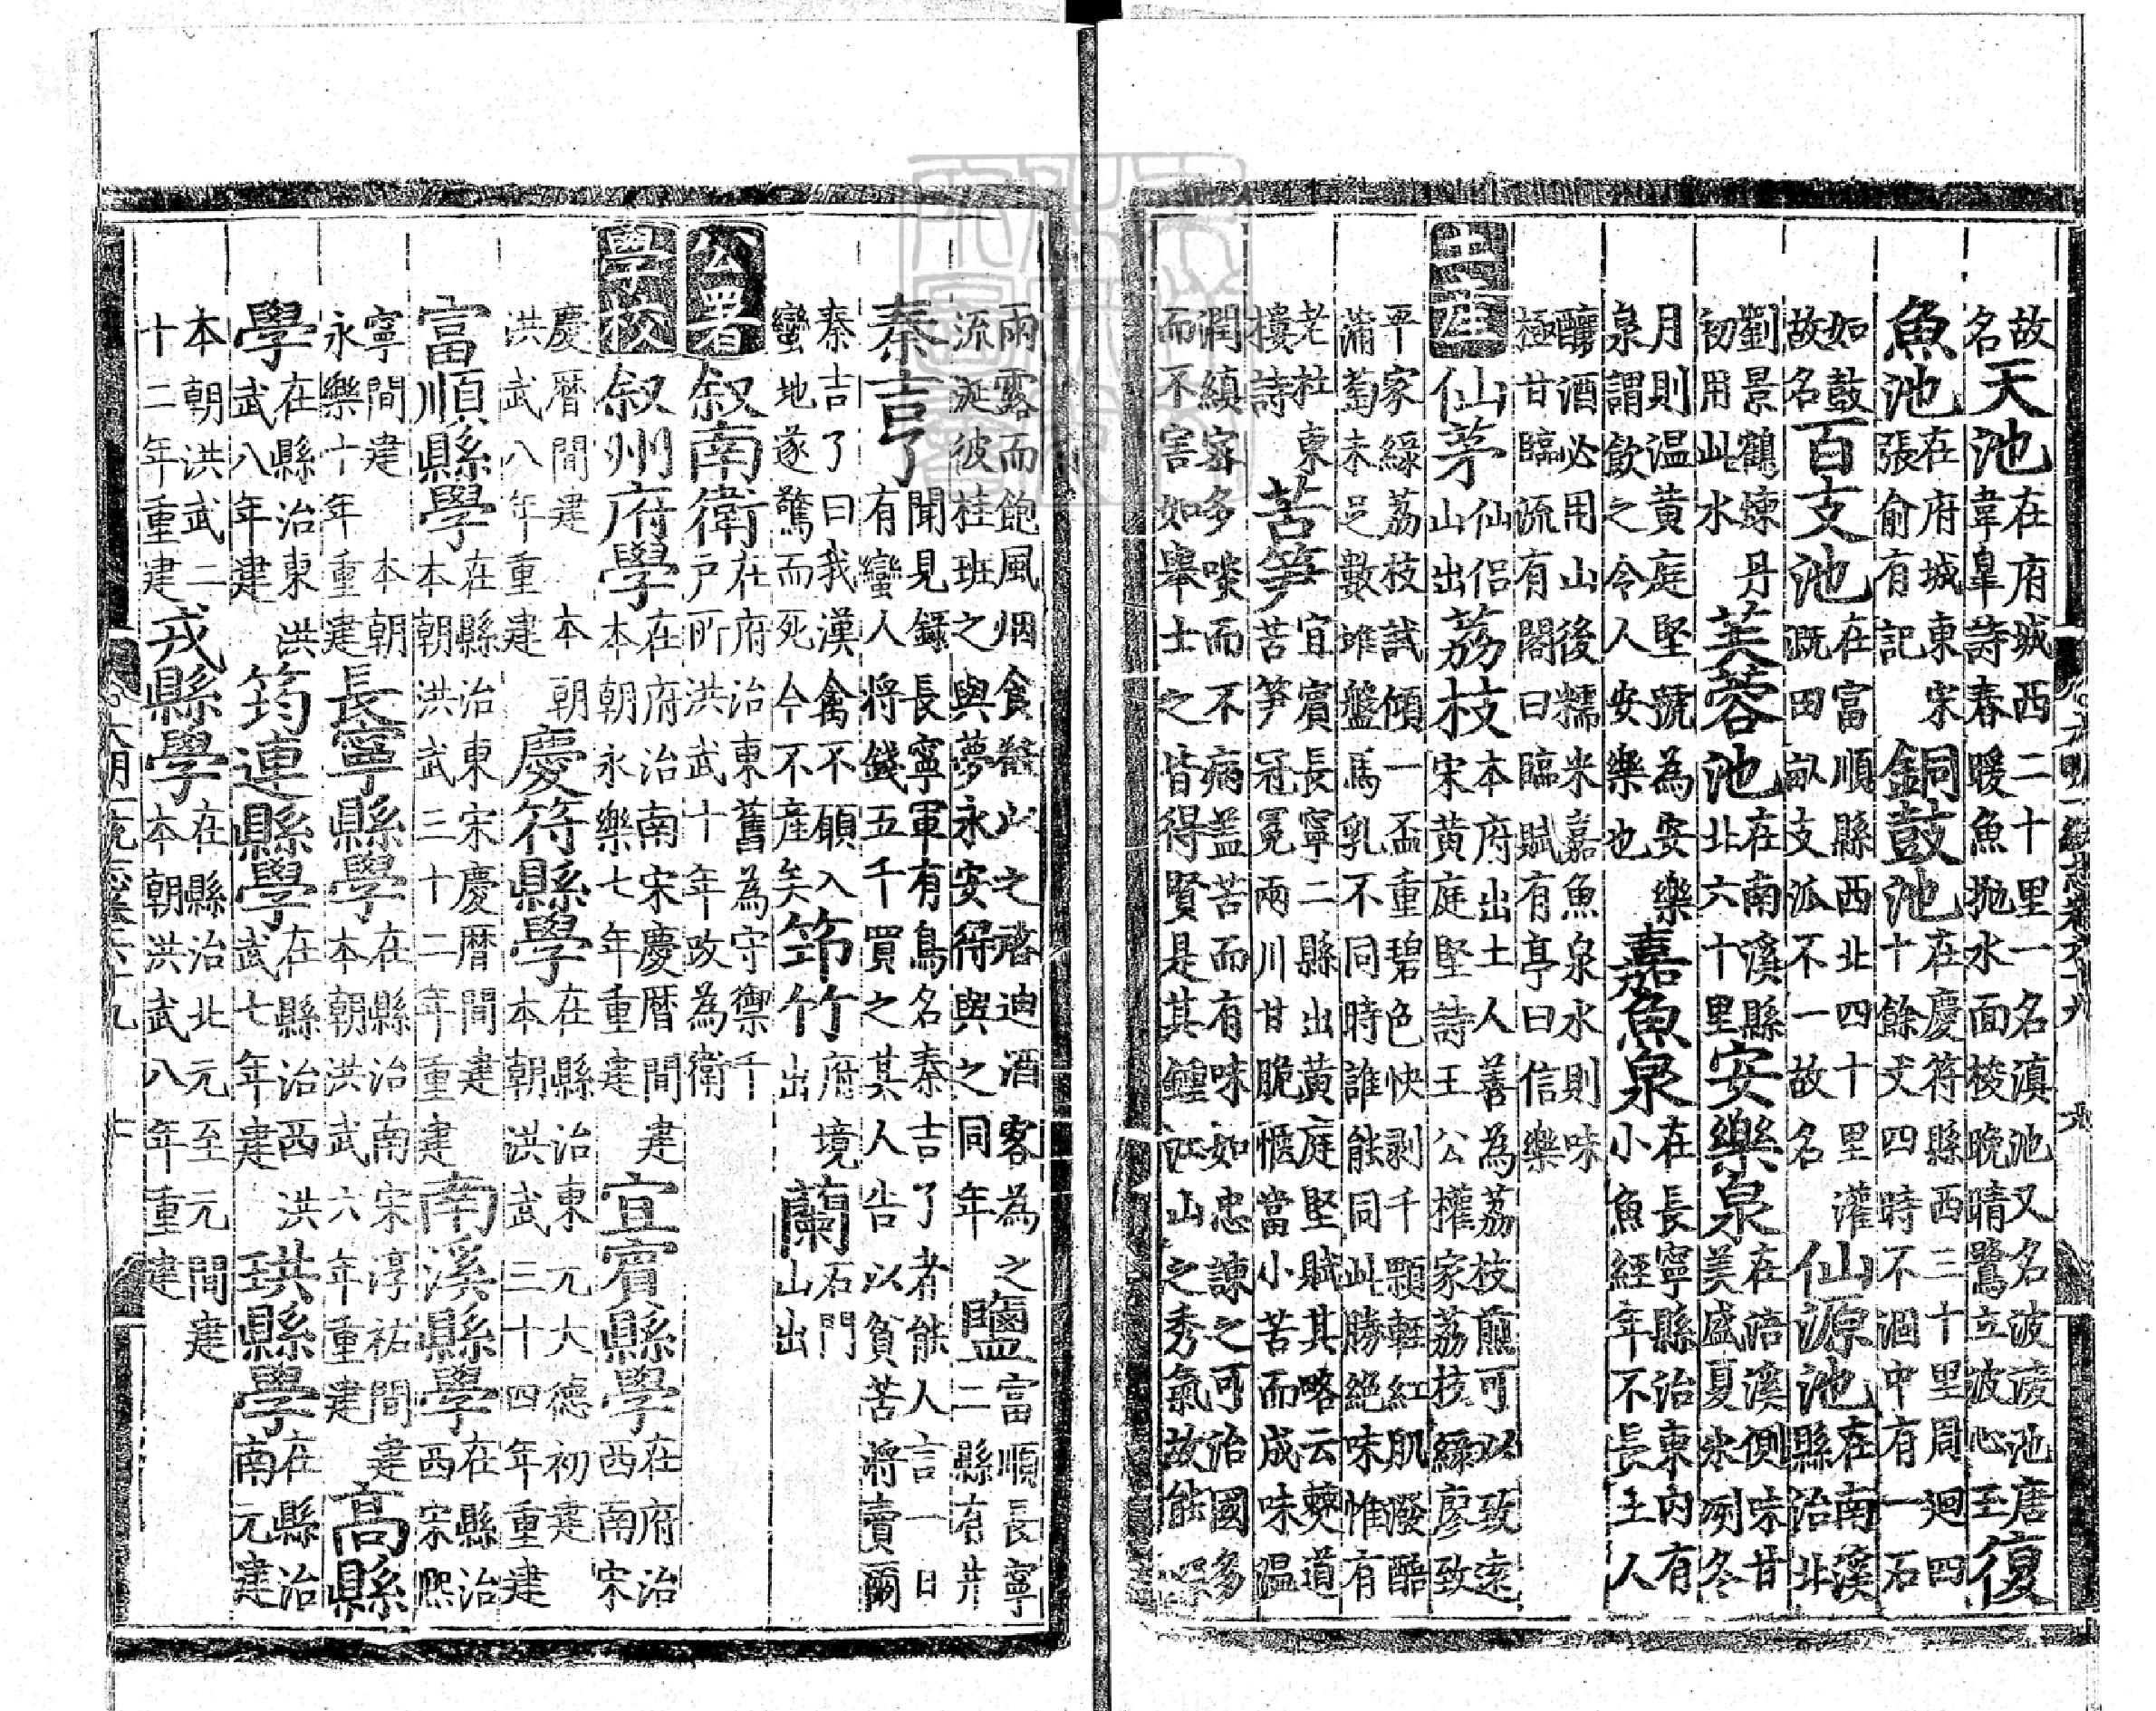 故名天池在府城西二十里一名滇池又名波凌池唐韋皐詩春暖魚拋水面棱晚晴鷺立波心玉復
魚池在府城東宋張俞有記銅鼓池在慶符縣西三十里周廻四十餘丈四時不涸中有一石
如鼓故名百支池在富順縣西北四十里灌溉田畝支派不一故名仙源池在南溪縣治北
劉景鶴煉丹初用此水芙蓉池在南溪縣北六十里安樂泉在涪溪側味甘美盛夏氷冽冬
月則温黃庭堅號為安樂泉謂飲之令人安樂也嘉魚泉在長寧縣治東內有小魚經年不長土人
釀酒必用山後糯米嘉魚泉水則味極甘臨流有閣曰臨賦有亭曰信樂
土産仙茅仙侶山出荔枝本府出土人善為荔枝煎可以致遠宋黃庭堅詩王公權家荔枝綠廖致
平家綠荔枝試傾一盃重碧色快剥千顆輕紅肌潑醅蒲萄未足數堆盤馬乳不同時誰能同此勝絶味惟有
老杜東樓詩苦笋宜賓長寧二縣出黃庭堅賦其略云僰道苦笋冠冕兩川甘脆愜當小苦而成味温
潤縝宻多啖而不病盖苦而有味如忠諫之可治國多而不害如舉士之皆得賢是其鍾江山之秀氣故能深
大明一統志卷六十九 九
雨露而飽風烟食殽以之啓迪酒客為之流涎彼桂斑之與夢永安得與之同年鹽富順長寧二縣有井
秦吉了聞見録長寧軍有鳥名秦吉了者能人言一日有蠻人將錢五千買之其人告以貧苦將賣爾
秦吉了曰我漢禽不願入蠻地遂驚而死今不産矣笻竹府境出蘭石門山出
公署叙南衛在府治東舊為守禦千户所洪武十年改為衛
學校叙州府學在府治南宋慶曆間建本朝永樂七年重建宜賓縣學在府治西南宋
慶曆間建本朝洪武八年重建慶符縣學在縣治東元大德初建本朝洪武三十四年重建
富順縣學在縣治東宋慶曆間建本朝洪武三十二年重建南溪縣學在縣治西宋熈
寧間建本朝永樂十年重建長寧縣學在縣治南宋淳祐間建本朝洪武六年重建高縣
學在縣治東洪武八年建筠連縣學在縣治西洪武七年建珙縣學在縣治南元建
本朝洪武二十二年重建戎縣學在縣治北元至元間建本朝洪武八年重建
大明一統志卷六十九 十